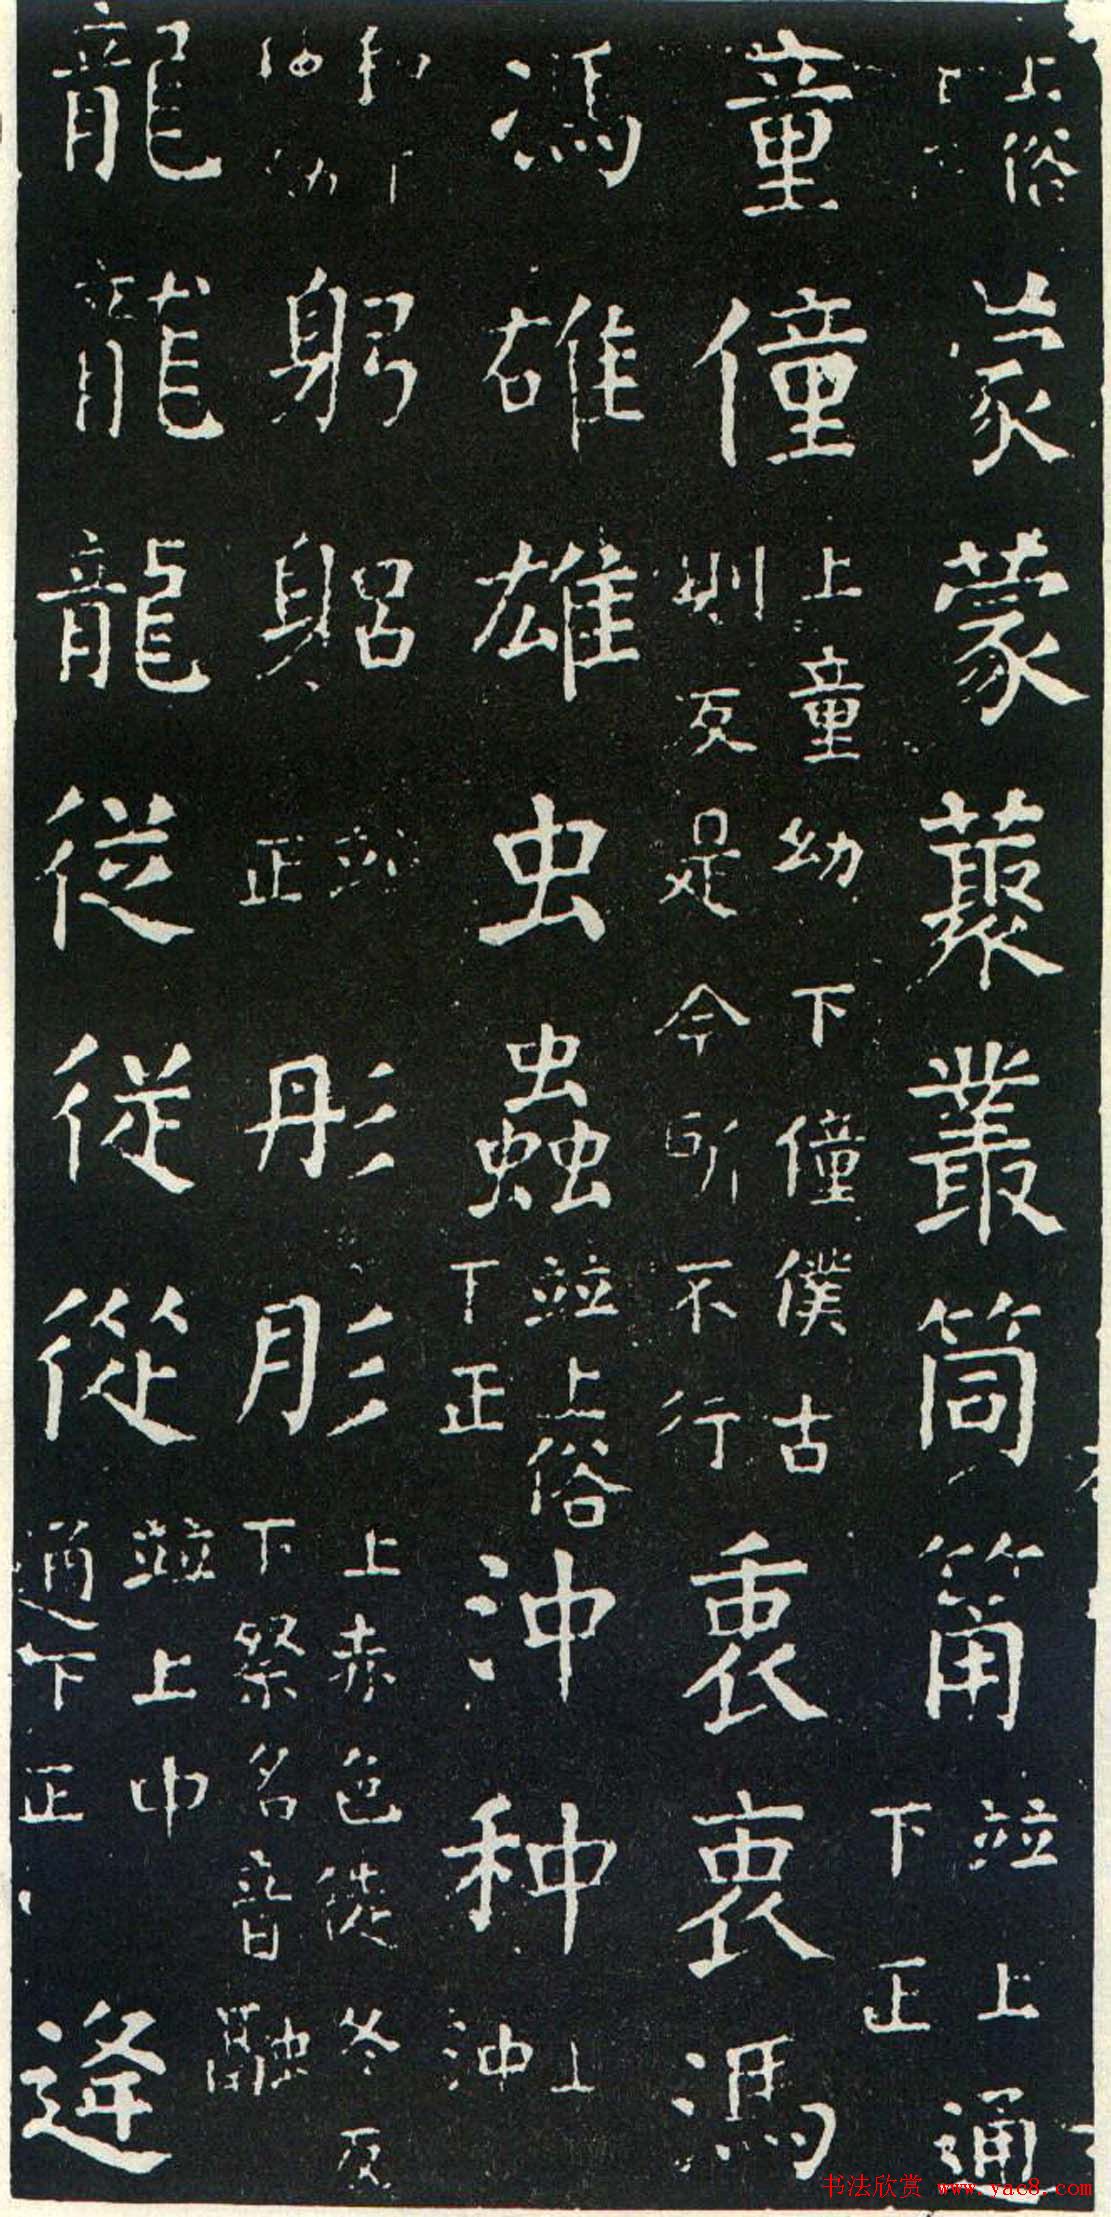 上俗下正蒙蒙藂叢筒筩並上通下正
童僮上童幼下僮僕古則反是今所不行衷衷馮
馮雄雄虫蟲並上俗下正沖种上沖
和下幼躬躳正彤肜上赤色徒冬反下祭名音融
龍龍龍従従從並上中通下正逢
书法欣赏 www.yac8.com